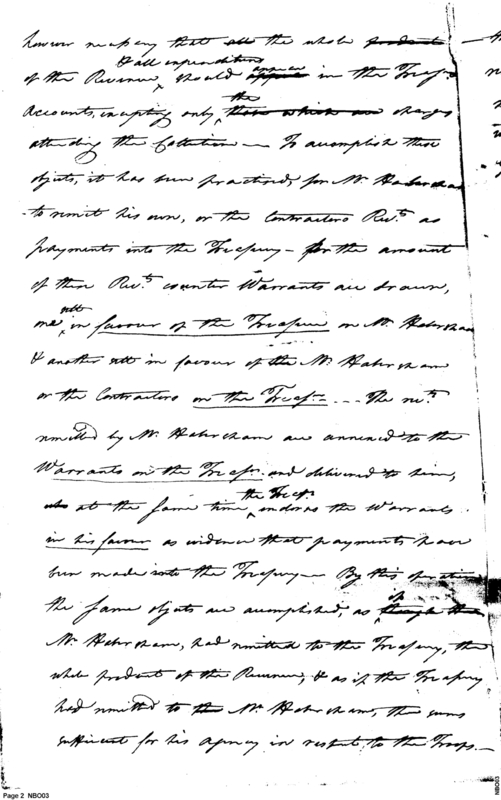 however necessary that all the whole products
& all expenditures
of the Revenue, should appear in the Treasy
the
Accounts, excepting only, those which are charges
attending the Collection — To accomplish these
objects, it has been practised, for Mr. Habersham
to remit his own, or the Contractors Rects. as
payments into the Treasury — for the amount
of these Rects. counter Warrants are drawn,
one, in favour of the Treasurer on Mr. Habersham
& another in favour of the Mr. Habersham
or the Contractors on the Treasr. — The rects.
remitted by Mr. Habersham are annexed to the
Warrants on the Treasr. and delivered to him,
the Treasr.
who at the same time, endorses the Warrants
in his favour as evidence that payments have
been made into the Treasury — By this operation
the same objects are accomplished, as if though the
Mr. Habersham, had remitted to the Treasury, the
whole product of the Revenue, & as if the Treasury
had remitted to the Mr. Habersham, the sums
sufficient for his agency in respect to the Troops —
Page 2 NBO03
NBO03